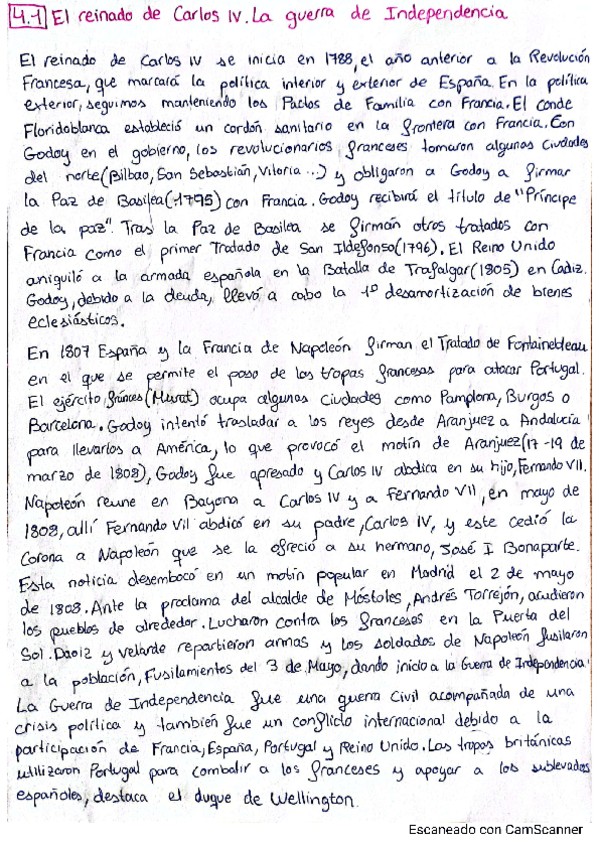 4.1 El reinado de Carlos IV. La guerra de Independencia
El reinado de Carlos IV se inicia en 1788, el año anterior a la Revolución
Francesa, que marcará la política interior y exterior de España. En la política
exterior, seguimos manteniendo los Pactos de Familia con Francia. El conde
Floridablanca estableció un cordón sanitario en la frontera con Francia. Con
Godoy en el gobierno, los revolucionarios franceses tomaron algunas ciudades
del norte (Bilbao, San Sebastián, Vitoria...) y obligaron a Godoy a firmar
la Paz de Basilea (1795) con Francia. Godoy recibirá el título de "Príncipe
de la paz". Tras la Paz de Basilea se firman otros tratados con
Francia como el primer Tratado de San Ildefonso (1796). El Reino Unido
aniquiló a la armada española en la Batalla de Trafalgar (1805) en Cádiz.
Godoy, debido a la deuda, llevó a cabo la 1º desamortización de bienes
eclesiásticos.
En 1807 España y la Francia de Napoleón firman el Tratado de Fontainebleau
en el que se permite el paso de las tropas francesas para atacar Portugal.
El ejército francés (Murat) ocupa algunas ciudades como Pamplona, Burgos o
Barcelona. Godoy intentó trasladar a los reyes desde Aranjuez a Andalucía
para llevarlos a América, lo que provocó el motín de Aranjuez (17-19 de
marzo de 1808), Godoy fue apresado y Carlos IV abdica en su hijo, Fernando VII.
Napoleón reune en Bayona a Carlos IV y a Fernando VII, en mayo de
1808, allí Fernando VII abdicó en su padre, Carlos IV, y este cedió la
Corona a Napoleón que se la ofreció a su hermano, José I Bonaparte.
Esta noticia desembocó en un motín popular en Madrid el 2 de mayo
de 1808. Ante la proclama del alcalde de Móstoles, Andrés Torrejón, acudieron
los pueblos de alrededor. Lucharon contra los franceses en la Puerta del
Sol. Daoiz y Velarde repartieron armas y los soldados de Napoleón fusilaron
a la población, Fusilamientos del 3 de Mayo, dando inicio a la Guerra de Independencia.
La Guerra de Independencia fue una guerra civil acompañada de una
crisis política y también fue un conflicto internacional debido a la
participación de Francia, España, Portugal y Reino Unido. Las tropas británicas
utilizaron Portugal para combatir a los franceses y apoyar a los sublevados
españoles, destaca el duque de Wellington.
Escaneado con CamScanner